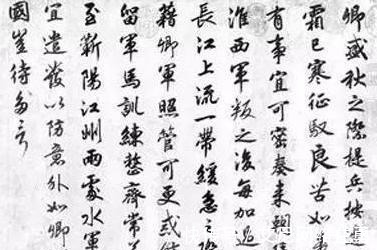 卿盛秋之際提兵按
霜已寒征馭良苦如
有事宜可密奏来朝
淮西軍叛之後每加過
長江上流一帶緩急之
籍卿軍照管可更戒
留軍馬訓練整齊常
至蘄陽江州兩處水軍
宜遣發以防意外如卿
國豈待多言